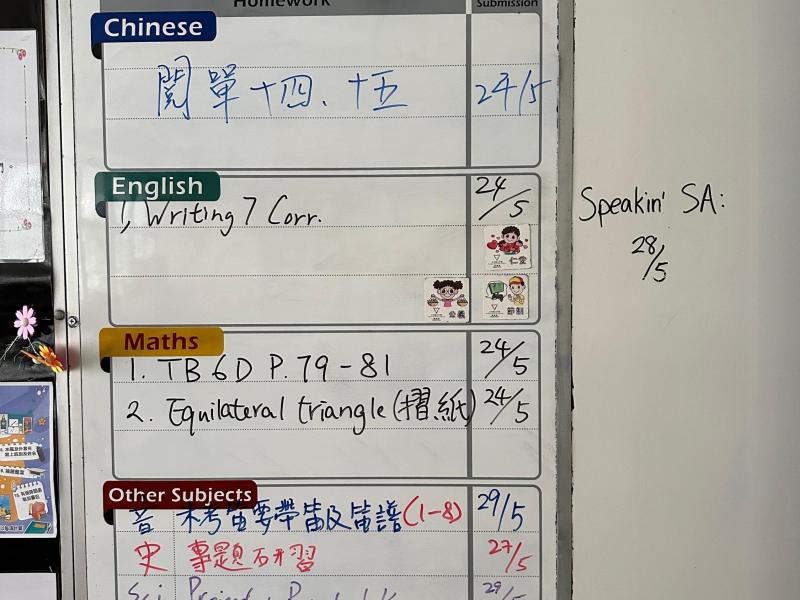 Homework
Submission
Chinese
閱單十四、十五 24/5
English
1, Writing 7 Corr. 24/5
仁愛
公義
節制
Maths
1. TB 6D P.79-81 24/5
2. Equilateral triangle (摺紙) 24/5
Other Subjects
音 未考笛要帶笛及笛譜(1-8) 29/5
史 專題研習 27/5
Sci 29
Speakin' SA:
28/5